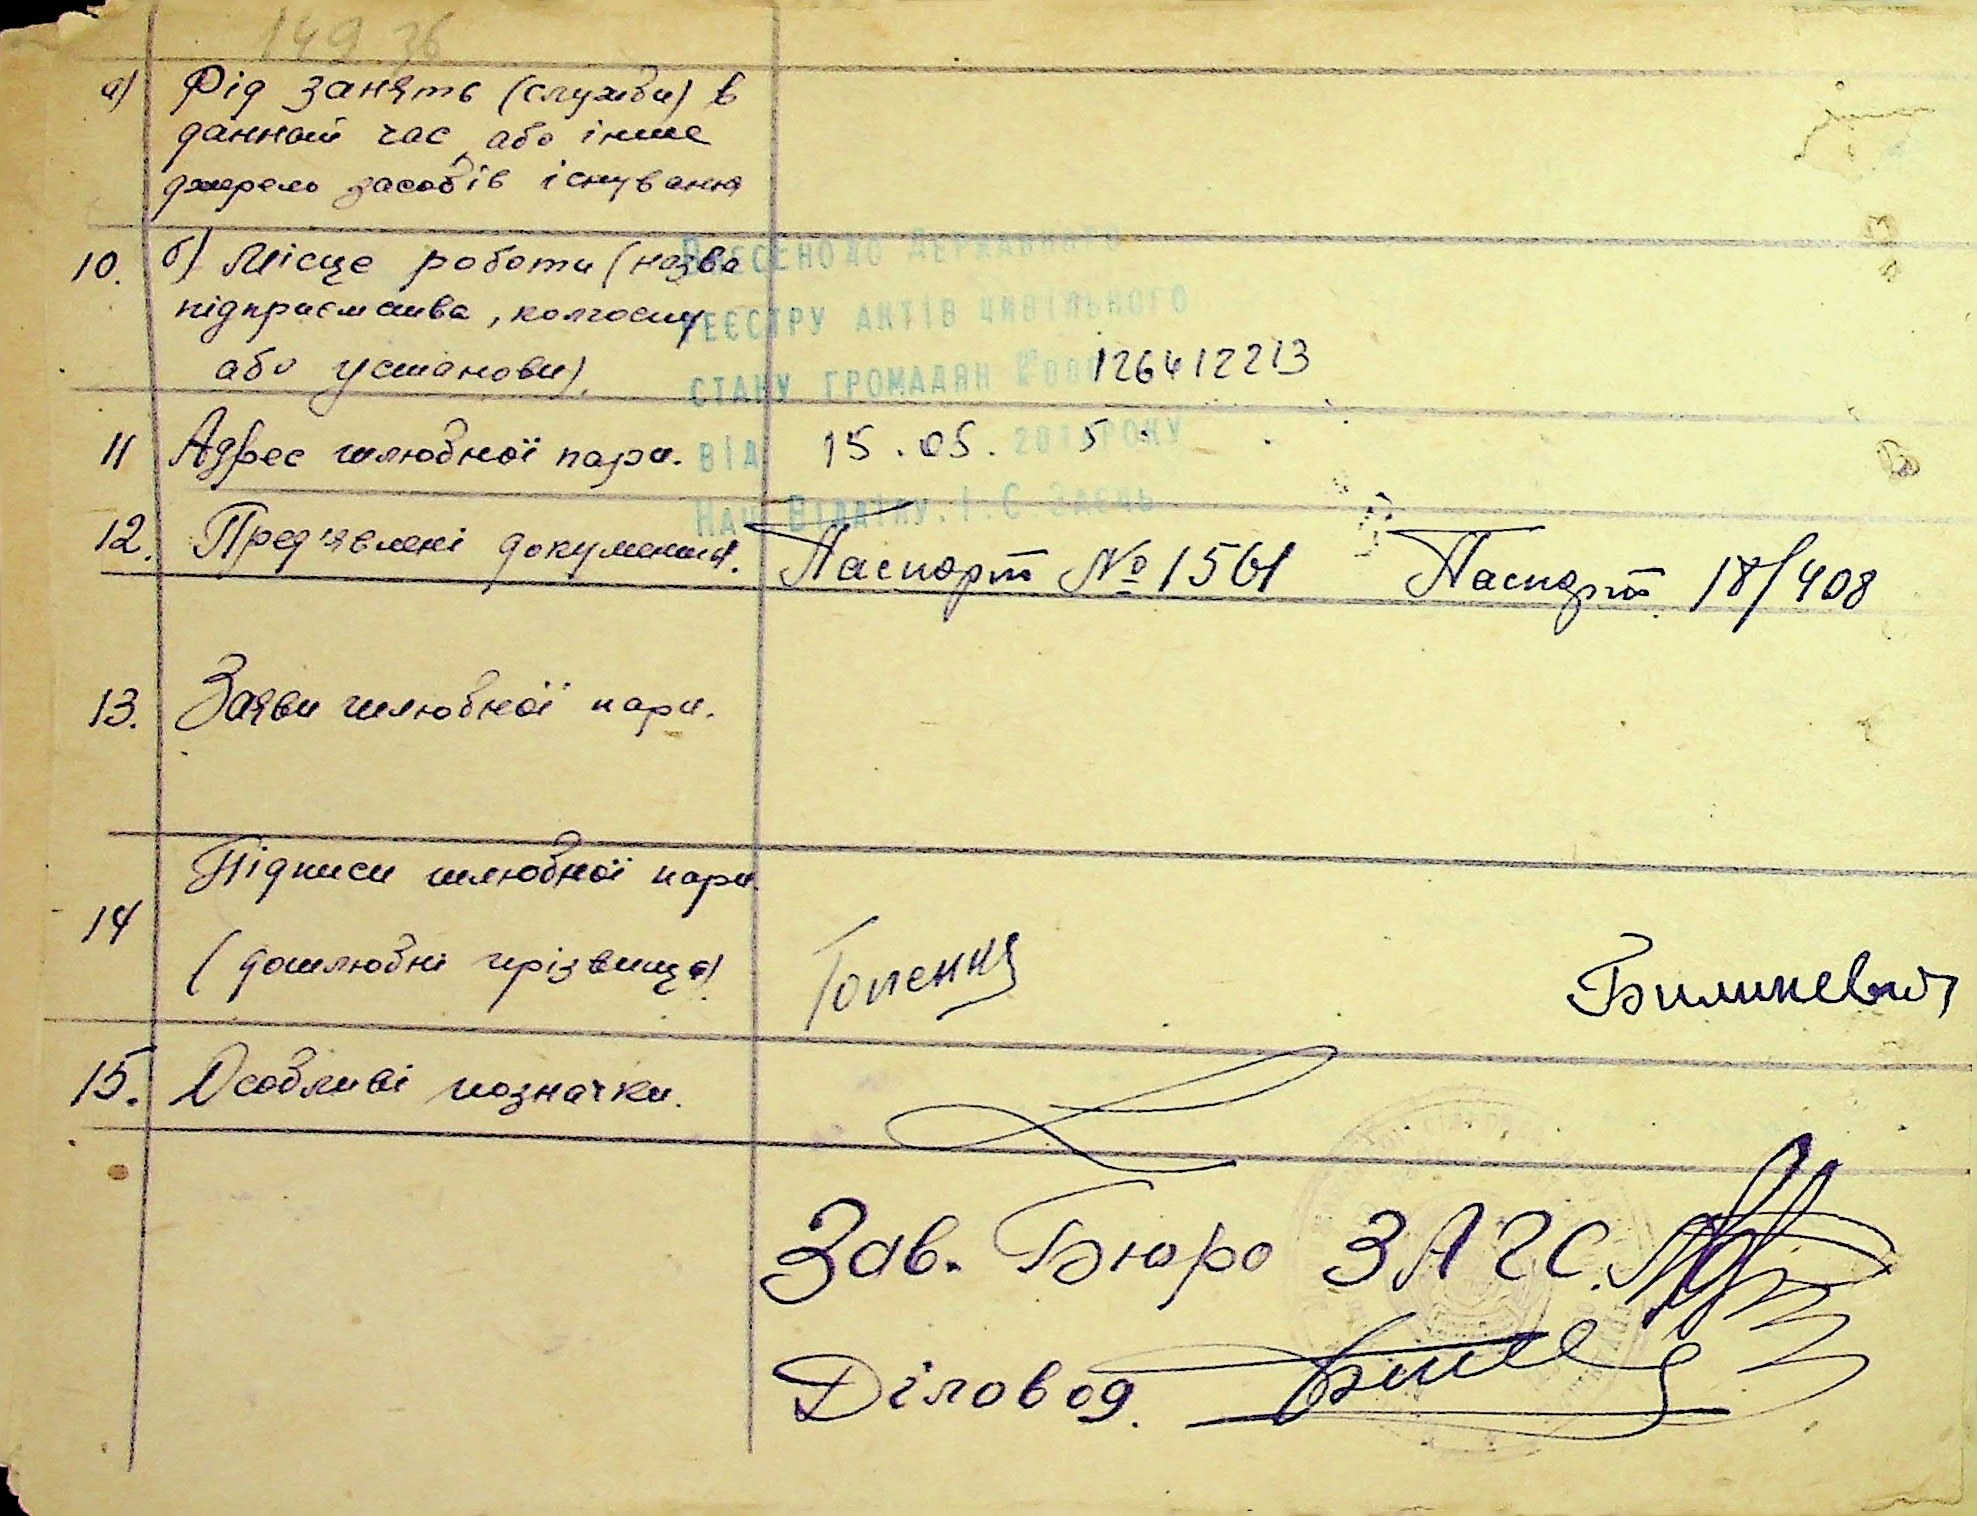 149 36
а) Рід занять (служби) в
данной час, або інше
джерело засобів існування
10. б) Місце роботи (назва
підприємства, колгоспу
або установи).
ВНЕСЕНО ДО ДЕРЖАВНОГО
РЕЄСТРУ АКТІВ ЦИВІЛЬНОГО
СТАНУ ГРОМАДЯН 126412213
ВІД 15.05.2015 РОКУ
НАЧ ВІДДІЛУ. І.С ЗАЄЦЬ
11 Адрес шлюбної пари.
12. Пред'явлені документи. Паспорт № 1561 Паспорт 18/408
13. Заяви шлюбної пари.
14 Підписи шлюбної пари
(дошлюбні прізвища)
15. Особливі позначки.
Зав. Бюро ЗАГС.
Діловод.